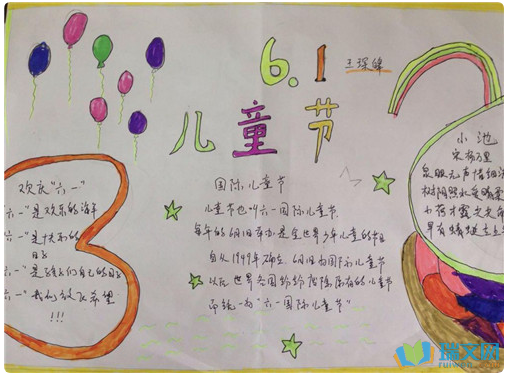 6.1
儿童节
欢庆"六一"
六一"是欢乐的海洋
六一"是快乐的
日子
六一"是我们自己的日子
六一"我们放飞希望
!!!
国际儿童节
儿童节也叫六一国际儿童节.
每年的6月1日举办是全世界少年儿童的节日
自从1949年确立,6月1日为国际儿童节
以后世界各国纷纷废除原有的儿童节
而统一为"六一国际儿童节"
小池
宋 杨万里
泉眼无声惜细
树阴照水爱晴柔
小荷才露尖尖角
早有蜻蜓立上
瑞文网
ruiwen